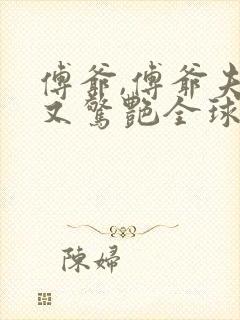 傅爺,傅爺夫
又驚艷全球
陳婦